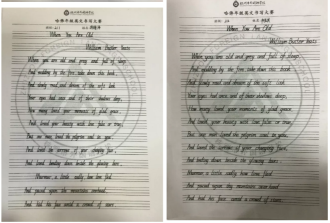 When You Are Old
William Butler Yeats
When you are old and grey and full of sleep
And nodding by the fire, take down this book,
And slowly read, and dream of the soft look
Your eyes had once and of their shadows deep.
How many loved your moments of glad grace,
And loved your beauty with love false or true;
But one man loved the pilgrim soul in you,
And loved the sorrows of your changing face,
And bending down beside the glowing bars,
Murmur, a little sadly, how love fled
And paced upon the mountains overhead
And hid his face amid a crowd of stars.
When You Are Old
William Butler Yeats
When you are old and grey and full of sleep
And nodding by the fire take down this book
And slowly read and dream of the soft look
Your eyes had once and of their shadows deep
How many loved your moments of glad grace
And loved your beauty with love false or true
But one man loved the pilgrim soul in you
And loved the sorrows of your changing face
And bending down beside the glowing bars
Murmur a little sadly how love fled
And paced upon the mountains overhead
And hid his face amid a crowd of stars